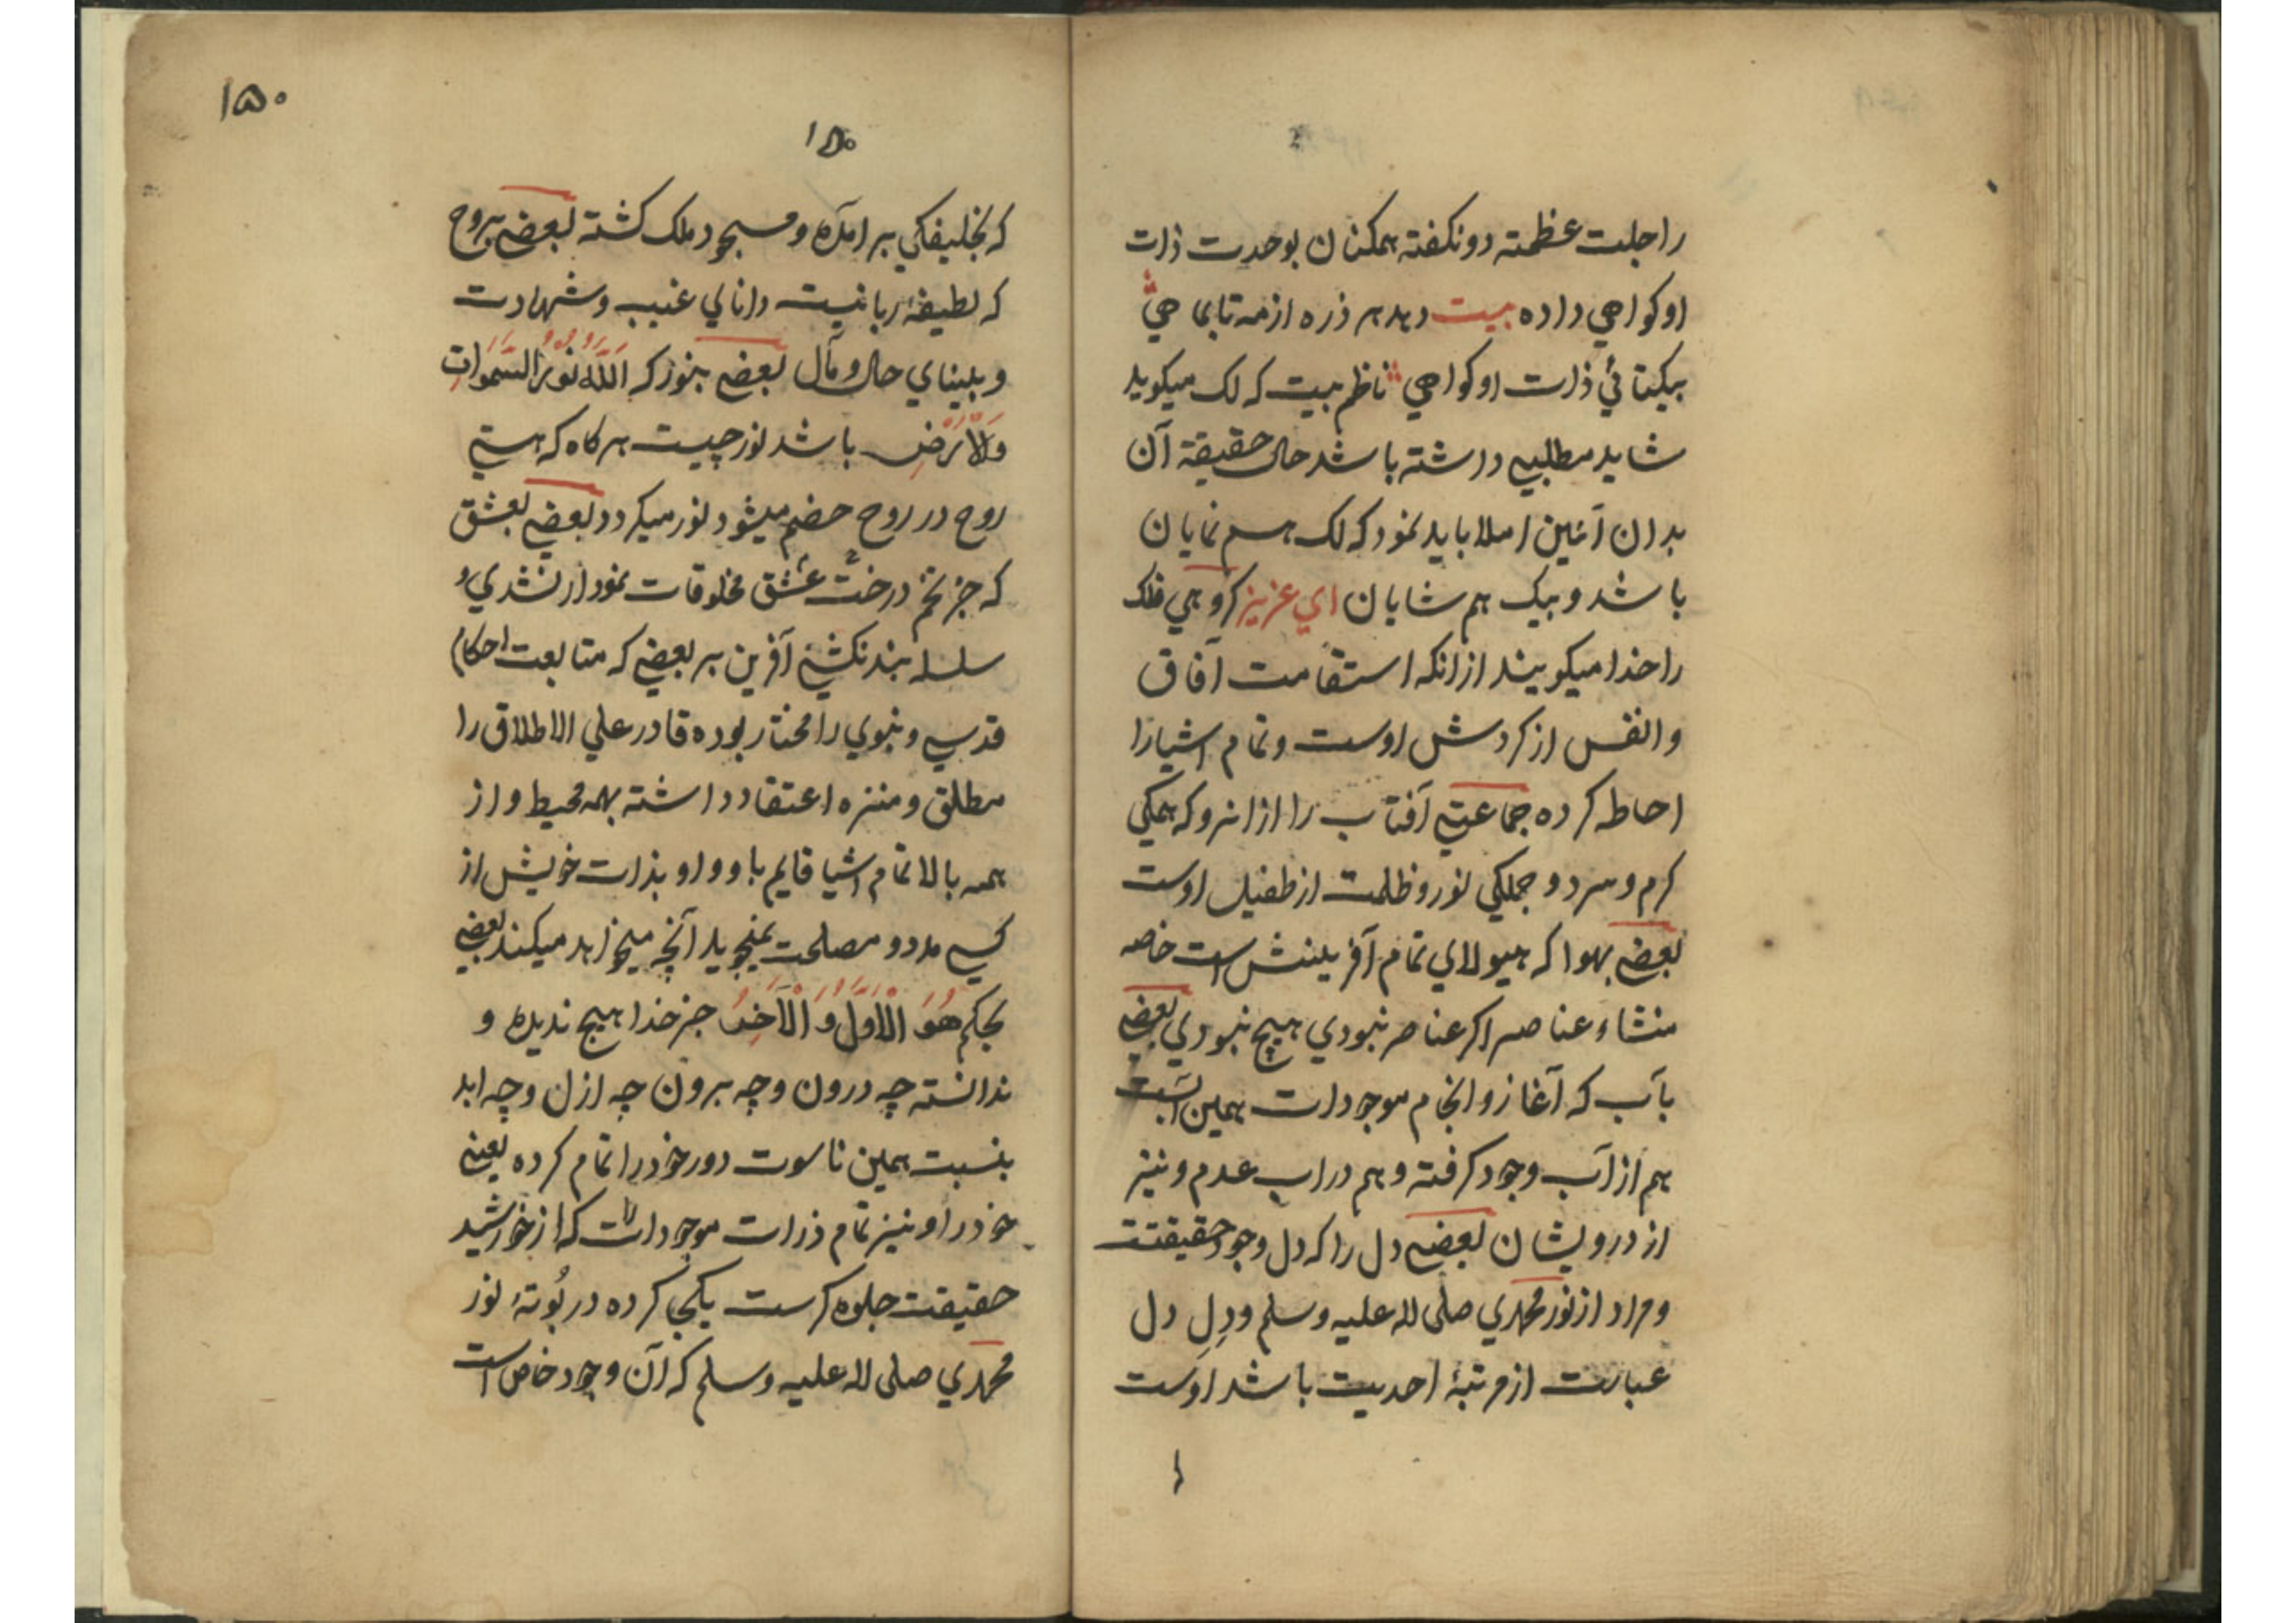 را جلت عظمته دو نکفته همکنان بوحدت ذات
او کواهي داده بیت دهد هر ذره از مه تا بماهي
بیکتائي ذات او کواهي ناظم بیت که لک میکوید
شاید مطلبي داشته باشد حال حقیقة آن
بدان آئین املا باید نمود که لک هم نمایان
باشد و بیک هم شایان اي عزیز کروهي فلک
را خدا میکویند از انکه استقامت آفاق
و انفس از کردش اوست و تمام اشیا را
احاطه کرده جماعتي آفتاب را از انرو که همکي
کرم و سرد و جملکي نور و ظلمت از طفیل اوست
بعضي بهوا که هیولاي تمام آفرینش است خاصه
منشاء عناصر اکر عناصر نبودي هیچ نبودي بعضي
بآب که آغاز و انجام موجودات همین آبست
هم از آب وجود کرفته و هم در اب عدم و نیز
از درویشان بعضي دل را که دل وجود حقیقتست
و مراد از نور محمدي صلی الله علیه وسلم و دلِ دل
عبارت از مرتبهٔ احدیت باشد اوست
۱۵۰
۱۵۰
که بخلیفکي بر امده و مسجود ملک کشته بعضي بروح
که لطیفهٔ ربانیست داناي غیب و شهادت
و بیناي حال و مآل بعضي بنور که اَللّٰهُ نُوْرُ السَّمٰوَاتِ
وَالْاَرْضِ باشد نور چیست هرکاه که هستي
روح در روح هضم میشود نور میکردد بعضي بعشق
که جز تخم درخت عشق مخلوقات نمودار نشدي و
سلسله بند نکشتي آفرین بر بعضي که متابعت احکام
قدسي و نبوي را مختار بوده قادر علي الاطلاق را
مطلق و منزه اعتقاد داشته بهمه محیط و از
همه بالا تمام اشیا قایم باو و او بذات خویش از
کسي مدد و مصلحت نمیجوید آنچه میخواهد میکند بعضي
بحکم هُوَ الْاَوَّلُ وَ الْاٰخِرُ جز خدا هیچ ندیده و
ندانسته چه درون و چه برون چه ازل و چه ابد
بنسبت همین ناسوت دور خود را تمام کرده یعني
خود را و نیز تمام ذرات موجودات را که از خورشید
حقیقت جلوه کرست یکجا کرده در بُوتهٔ نور
محمدي صلی الله علیه وسلم که آن وجود خاص است